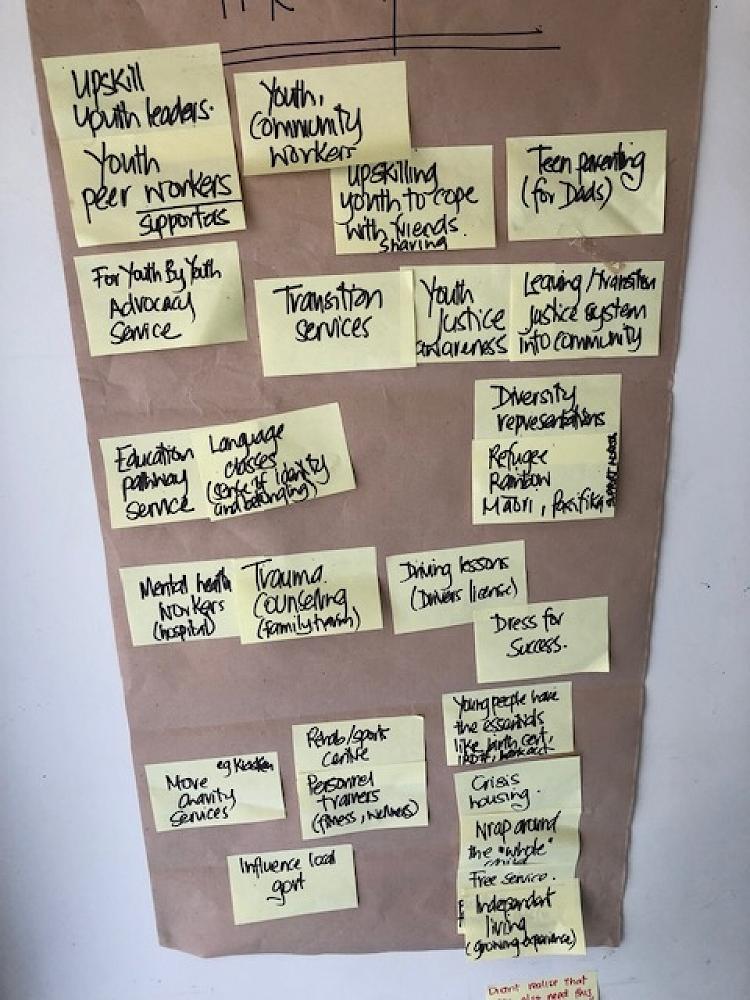 Upskill
youth leaders.
Youth
peer workers
supportas
Youth,
Community
workers
upskilling
youth to cope
with friends.
sharing
Teen parenting
(for Dads)
For Youth By Youth
Advocacy
Service
Transition
services
Youth
Justice
awareness
Leaving / transition
justice system
into community
Education
pathway
service
Language
classes
(sense of identity
and belonging)
Diversity
representations
Refugee
Rainbow
Māori, Pasifika
Mental health
workers
(hospital)
Trauma.
Counseling
(family trauma)
Driving lessons
(Drivers license)
Dress for
Success.
eg Kickstar
More
charity
services
Rehab/sports
centre
Personnel
trainers
(fitness, wellness)
Influence local
govt
Young people have
the essentials
like birth cert,
Crisis
housing.
Wrap around
the "whole"
child
Free service.
Independant
living
(growing experience)
Didn't realise that
also need this